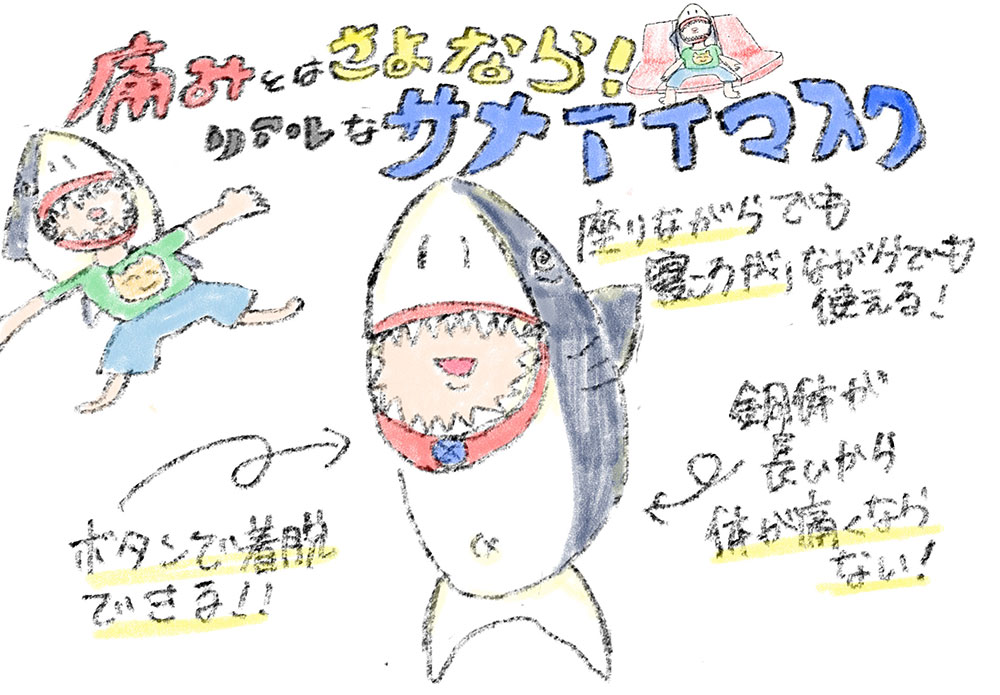 痛みとはさよなら!
リアルなサメアイマスク
座りながらでも
寝っころがりながらでも
使える!
胴体が
長いから
体が痛くなら
ない!
ボタンで着脱
できる!!